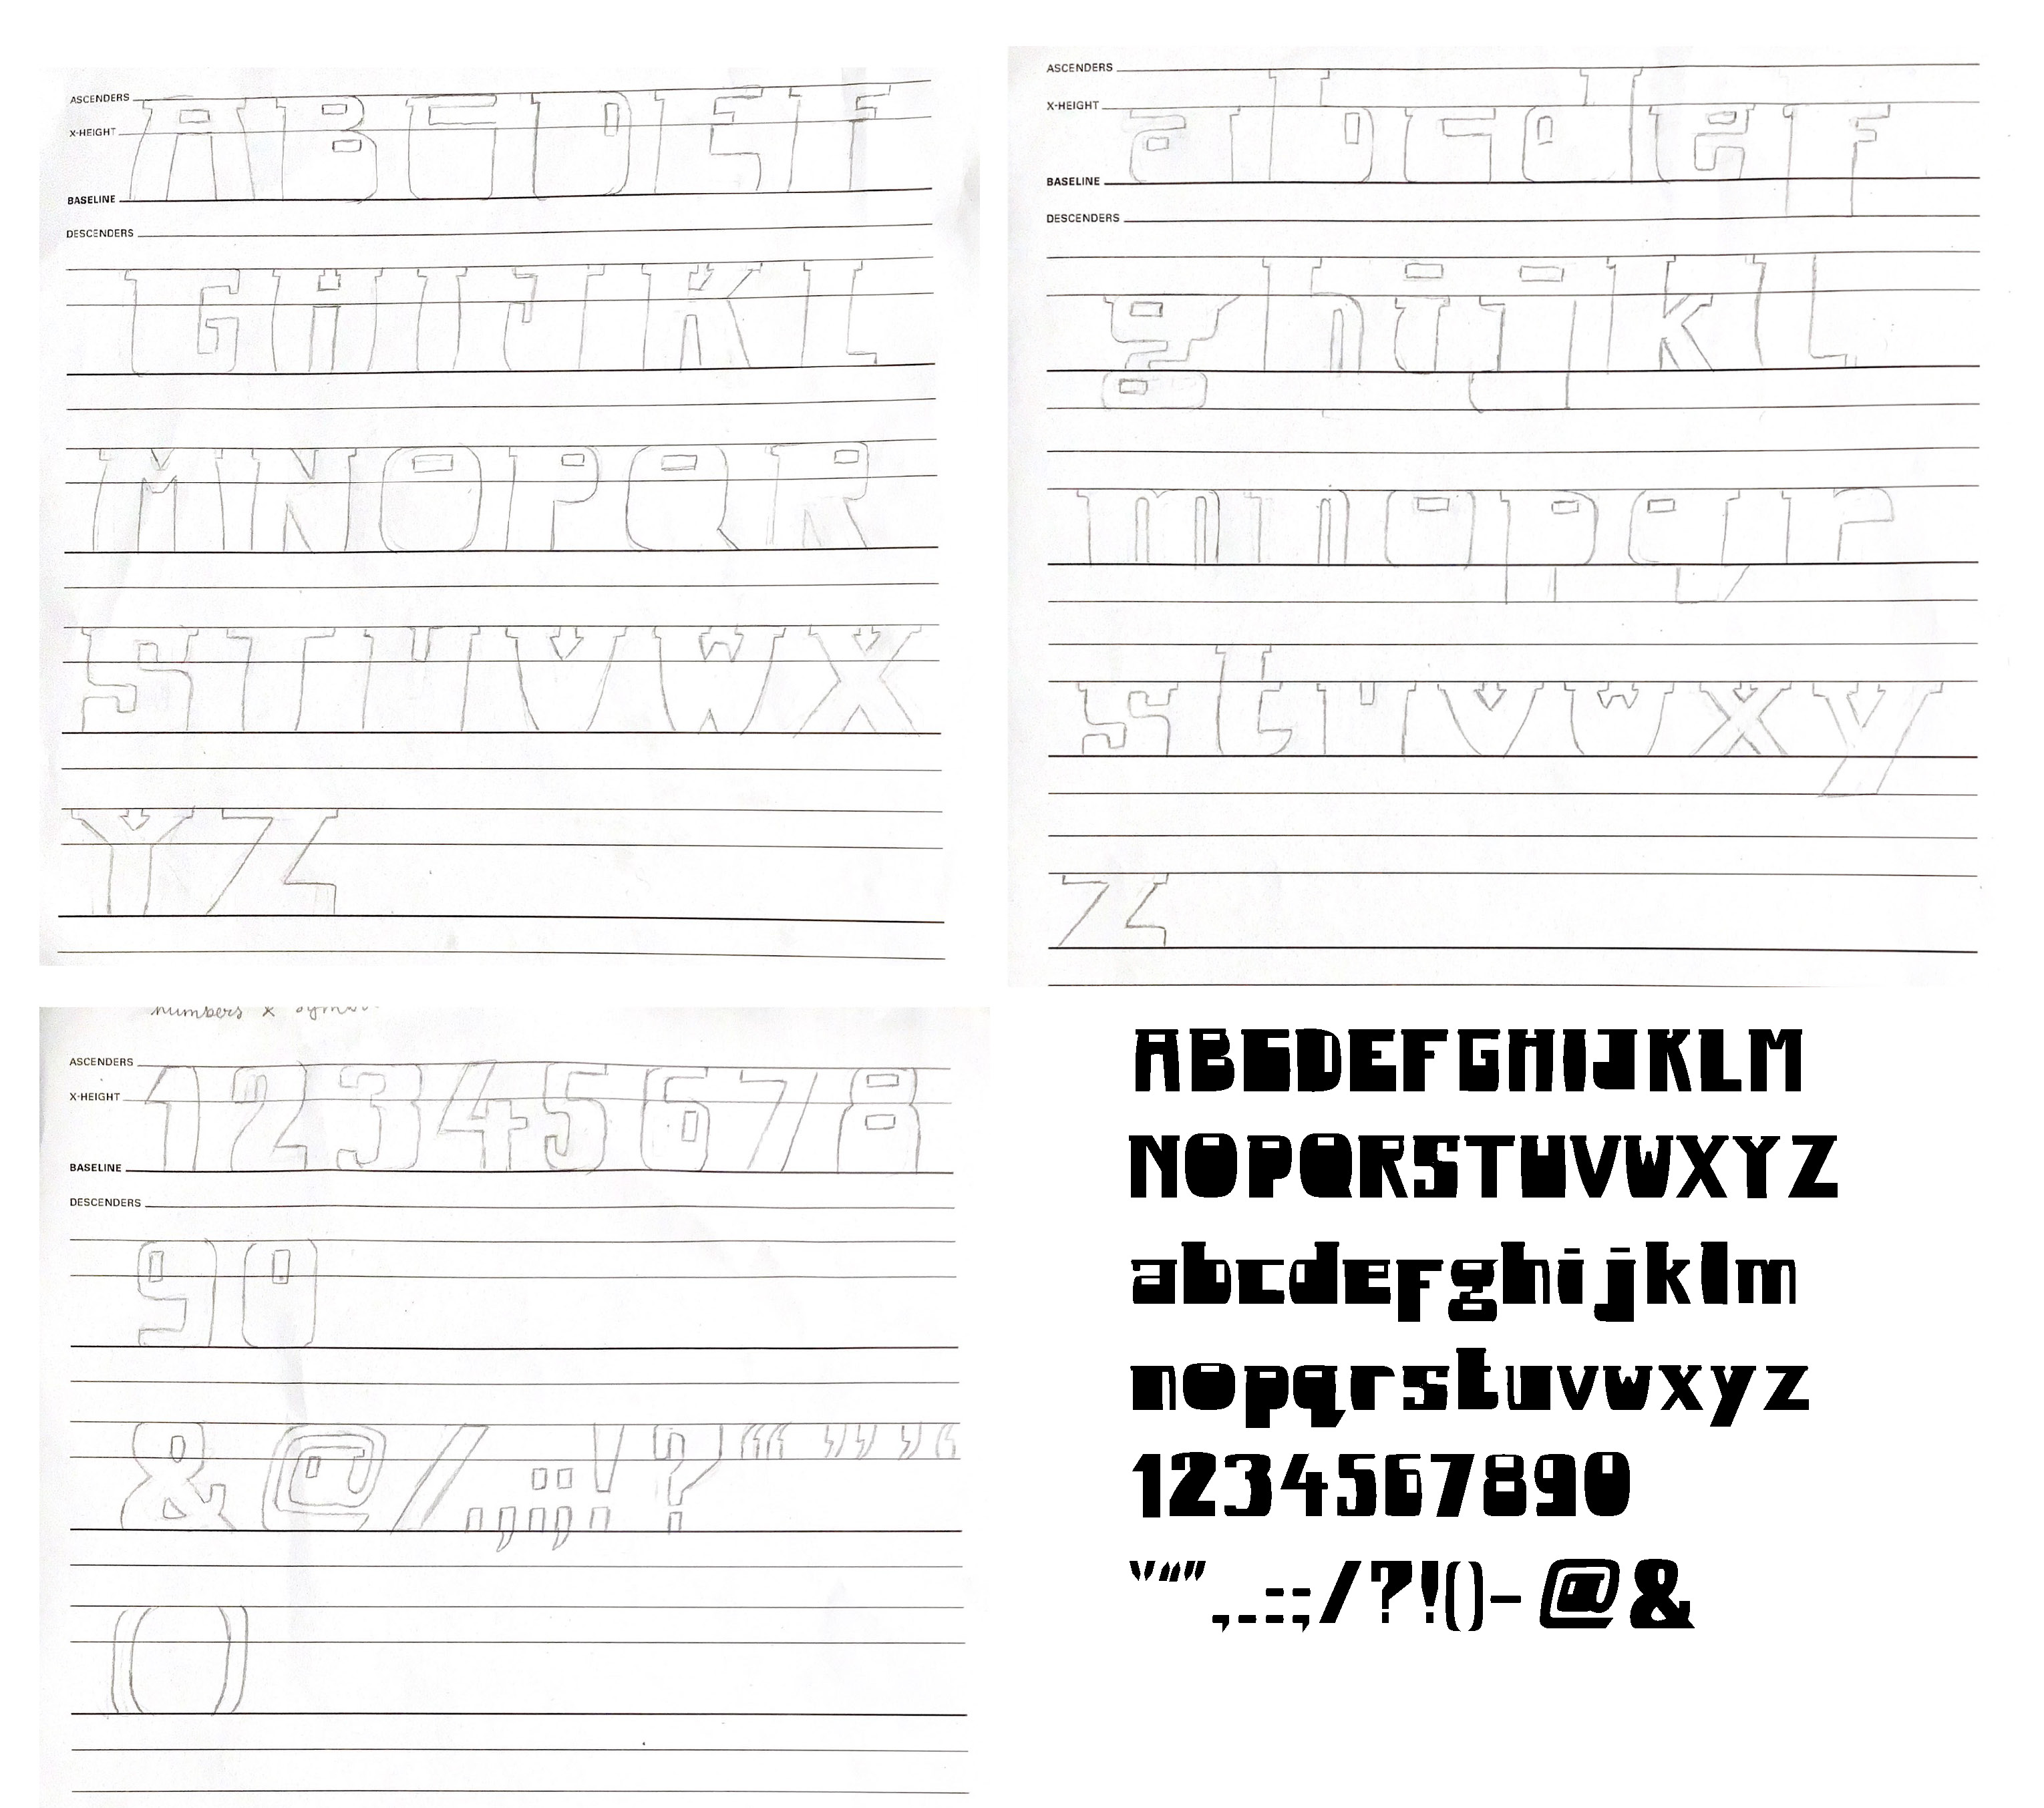 ASCENDERS
X-HEIGHT
BASELINE
DESCENDERS
ABCDEF
GHIJKL
MNOPQR
STUVWX
YZ
ASCENDERS
X-HEIGHT
BASELINE
DESCENDERS
abcdef
ghijkl
mnopqr
stuvwxy
z
numbers &
ASCENDERS
X-HEIGHT
BASELINE
DESCENDERS
12345678
90
&@/.,:;!?“”’‘
()
ABCDEFGHIJKLM
NOPQRSTUVWXYZ
abcdefghijklm
nopqrstuvwxyz
1234567890
"“”,.:;/?!()- @&